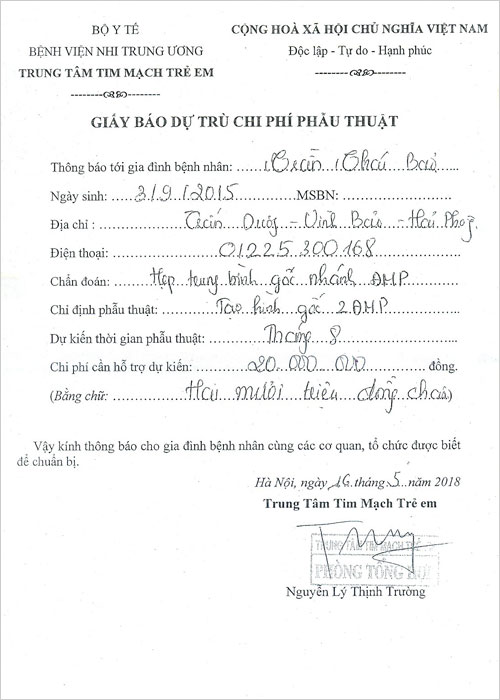 BỘ Y TẾ
BỆNH VIỆN NHI TRUNG ƯƠNG
TRUNG TÂM TIM MẠCH TRẺ EM
CỘNG HOÀ XÃ HỘI CHỦ NGHĨA VIỆT NAM
Độc lập - Tự do - Hạnh phúc
GIẤY BÁO DỰ TRÙ CHI PHÍ PHẪU THUẬT
Thông báo tới gia đình bệnh nhân: Trần Thái Bảo
Ngày sinh: 3/9/2015 MSBN:
Địa chỉ : Trấn Dương - Vĩnh Bảo - Hải Phòng
Điện thoại: 01225 300 168
Chẩn đoán: Hẹp trung bình gốc nhánh ĐMP
Chỉ định phẫu thuật: Tạo hình gốc 2 ĐMP
Dự kiến thời gian phẫu thuật: Tháng 8
Chi phí cần hỗ trợ dự kiến: 20.000 000 đồng.
(Bằng chữ: Hai mười triệu đồng chẵn)
Vậy kính thông báo cho gia đình bệnh nhân cùng các cơ quan, tổ chức được biết
để chuẩn bị.
Hà Nội, ngày 16 tháng 5 năm 2018
Trung Tâm Tim Mạch Trẻ em
TRUNG TÂM TIM MẠCH TRẺ
PHÒNG TỔNG HỢP
Nguyễn Lý Thịnh Trường